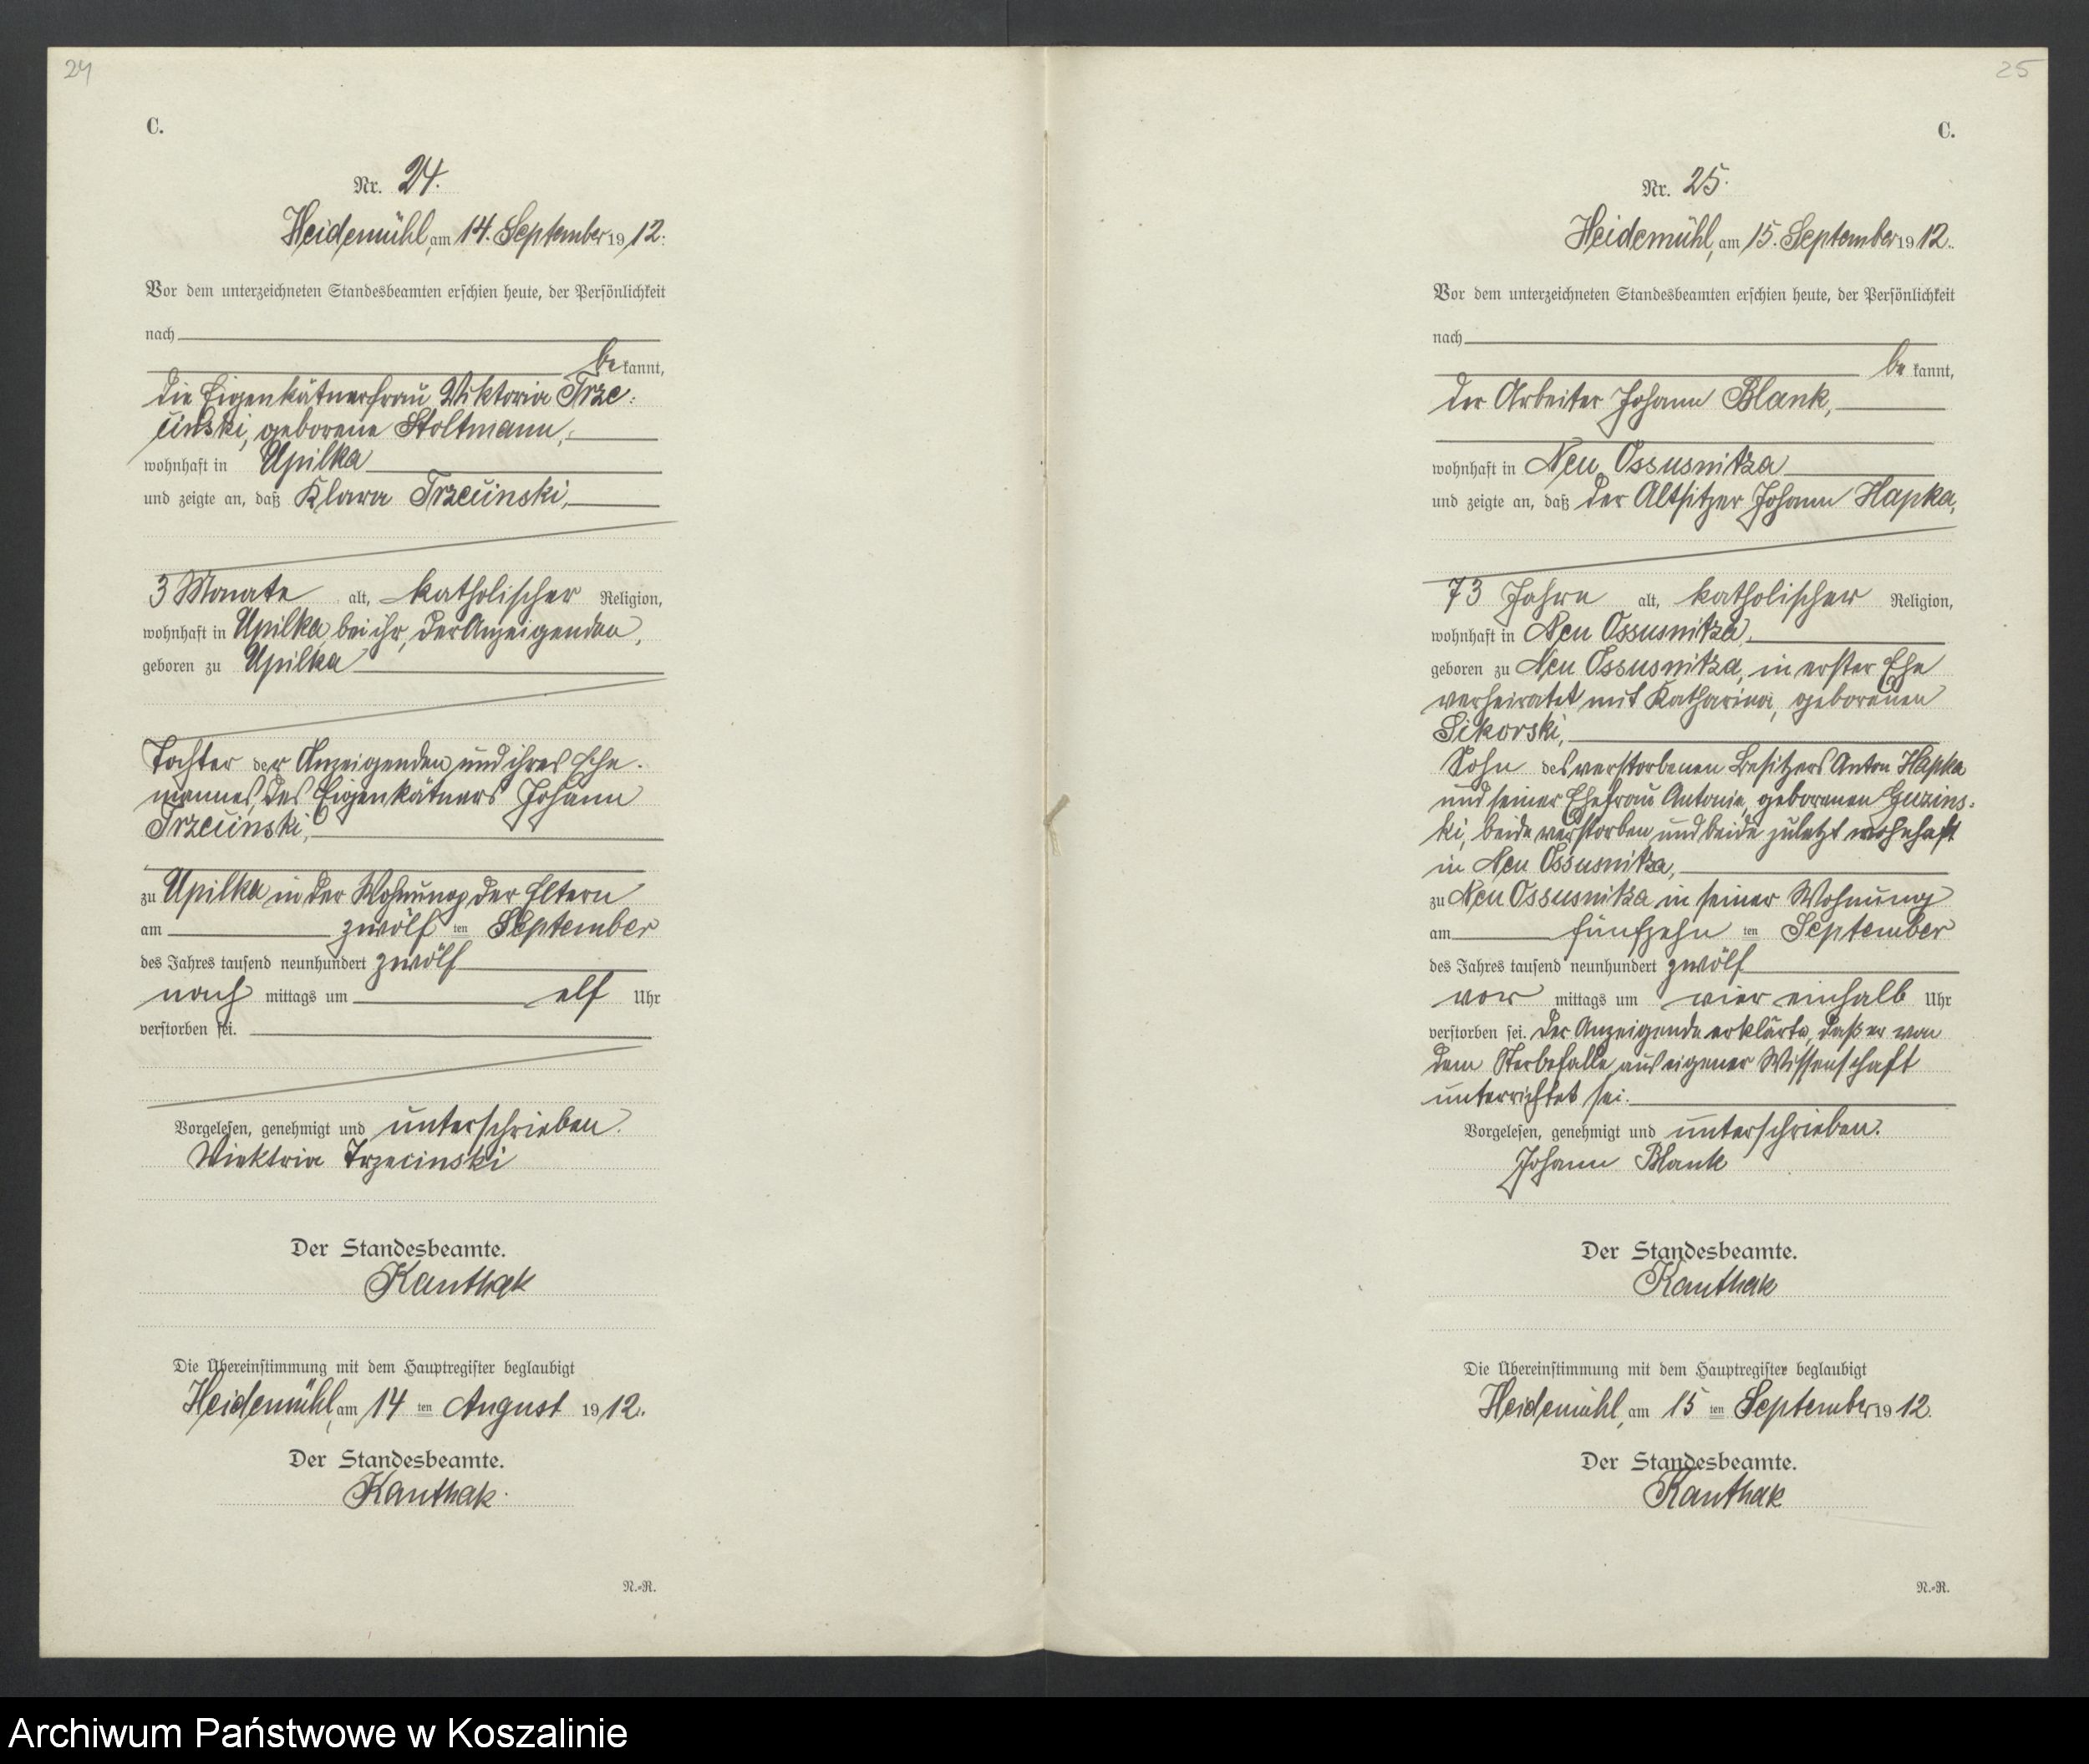 24
C.
Nr. 24.
Heidemühl, am 14. September 1912.
Vor dem unterzeichneten Standesbeamten erschien heute, der Persönlichkeit
nach
bekannt,
die Eigenkätnerfrau Wiktoria Trze=
cinski, geborene Stoltmann,
wohnhaft in Upilka
und zeigte an, daß Klara Trzecinski,
3 Monate alt, katholischer Religion,
wohnhaft in Upilka bei ihr, der Anzeigenden,
geboren zu Upilka
Tochter der Anzeigenden und ihres Ehe=
mannes, des Eigenkätners Johann
Trzecinski,
zu Upilka in der Wohnung der Eltern
am zwölf ten September
des Jahres tausend neunhundert zwölf
nach mittags um elf Uhr
verstorben sei.
Vorgelesen, genehmigt und unterschrieben.
Wiektoria Trzecinski
Der Standesbeamte.
Kanthak
Die Übereinstimmung mit dem Hauptregister beglaubigt
Heidemühl, am 14 ten August 1912.
Der Standesbeamte.
Kanthak.
N.=R.
25
C.
Nr. 25.
Heidemühl, am 15. September 1912.
Vor dem unterzeichneten Standesbeamten erschien heute, der Persönlichkeit
nach
bekannt,
der Arbeiter Johann Blank,
wohnhaft in Neu Ossusnitza
und zeigte an, daß der Altsitzer Johann Hapka,
73 Jahre alt, katholischer Religion,
wohnhaft in Neu Ossusnitza,
geboren zu Neu Ossusnitza, in erster Ehe
verheiratet mit Katharina, geborenen
Sikorski,
Sohn des verstorbenen Besitzers Anton Hapka
und seiner Ehefrau Antonie, geborenen Guzins=
ki, beide verstorben und beide zuletzt wohnhaft
in Neu Ossusnitza,
zu Neu Ossusnitza in seiner Wohnung
am fünfzehn ten September
des Jahres tausend neunhundert zwölf
vor mittags um vier einhalb Uhr
verstorben sei. Der Anzeigende erklärte, daß er von
dem Sterbefalle aus eigener Wissenschaft
unterrichtet sei.
Vorgelesen, genehmigt und unterschrieben.
Johann Blank
Der Standesbeamte.
Kanthak
Die Übereinstimmung mit dem Hauptregister beglaubigt
Heidemühl, am 15 ten September 1912.
Der Standesbeamte.
Kanthak
N.=R.
Archiwum Państwowe w Koszalinie